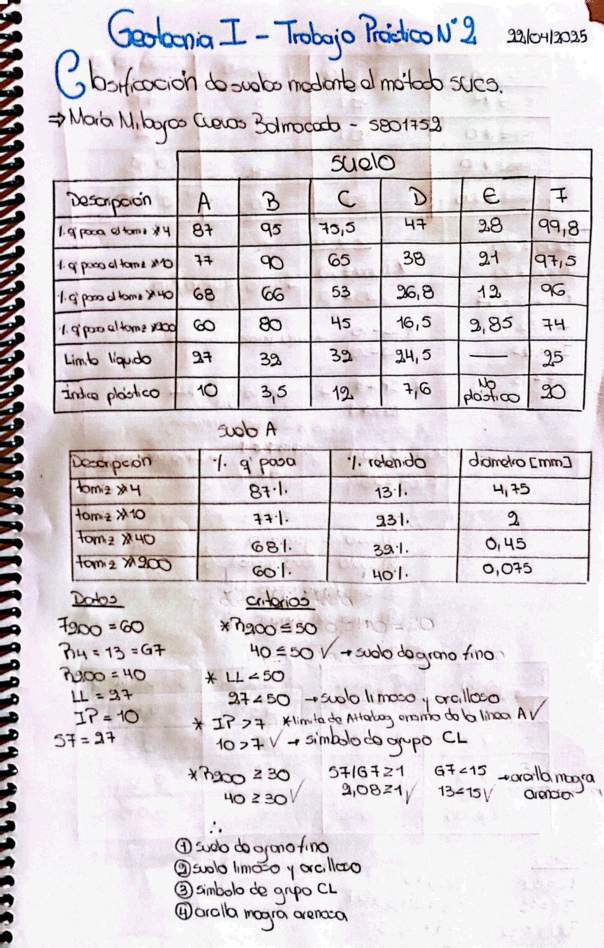 Geotecnia I - Trabajo Práctico N°2 22/04/2025
Clasificación de suelos mediante el método SUCS.
⇒ María Milagros Cuevas Balmaceda - 5801752
SUELO
Descripción A B C D E I
% q' pasa el tamiz N°4 87 95 75,5 47 28 99,8
% q' pasa el tamiz N°10 77 90 65 38 21 97,5
% q' pasa el tamiz N°40 68 66 53 26,8 12 96
% q' pasa el tamiz N°200 60 80 45 16,5 2,85 74
Limite líquido 27 32 32 24,5 — 25
Índice plástico 10 3,5 12 7,6 No plástico 20
Suelo A
Descripción % q' pasa % retenido diametro [mm]
tamiz N°4 87% 13% 4,75
tamiz N°10 77% 23% 2
tamiz N°40 68% 32% 0,45
tamiz N°200 60% 40% 0,075
Datos Criterios
F200 = 60 *R200 ≤ 50
R4 = 13 = GF 40 ≤ 50 ✓ → suelo de grano fino
R200 = 40 * LL < 50
LL = 27 27 < 50 → suelo limoso y arcilloso ✓
IP = 10 * IP > 7 *limite de Atterberg encima de la linea A ✓
SF = 27 10 > 7 ✓ → simbolo de grupo CL
*R200 ≥ 30 SF/GF ≥ 1 GF < 15 → arcilla magra
40 ≥ 30 ✓ 2,08 ≥ 1 ✓ 13 < 15 ✓ arenosa
∴
① suelo de grano fino
② suelo limoso y arcilloso
③ simbolo de grupo CL
④ arcilla magra arenosa